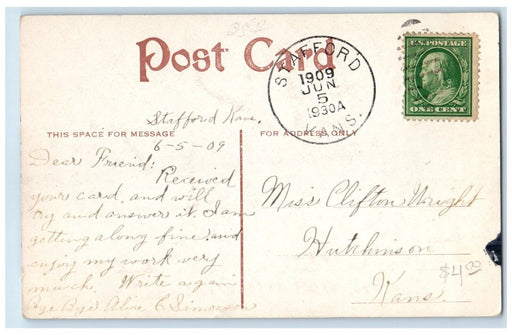 Post Card
STAFFORD
1909
JUN
5
930A
KANS.
U.S. POSTAGE
ONE CENT
Stafford Kans,
THIS SPACE FOR MESSAGE
FOR ADDRESS ONLY
6-5-09
Dear Friend:
Received
your card, and will
try and answer it. I am
getting along fine, and
enjoy my work very
much. Write again
Bye Bye Alice C Simonson
Miss Clifton Wright
Hutchinson
Kans.
$4.00